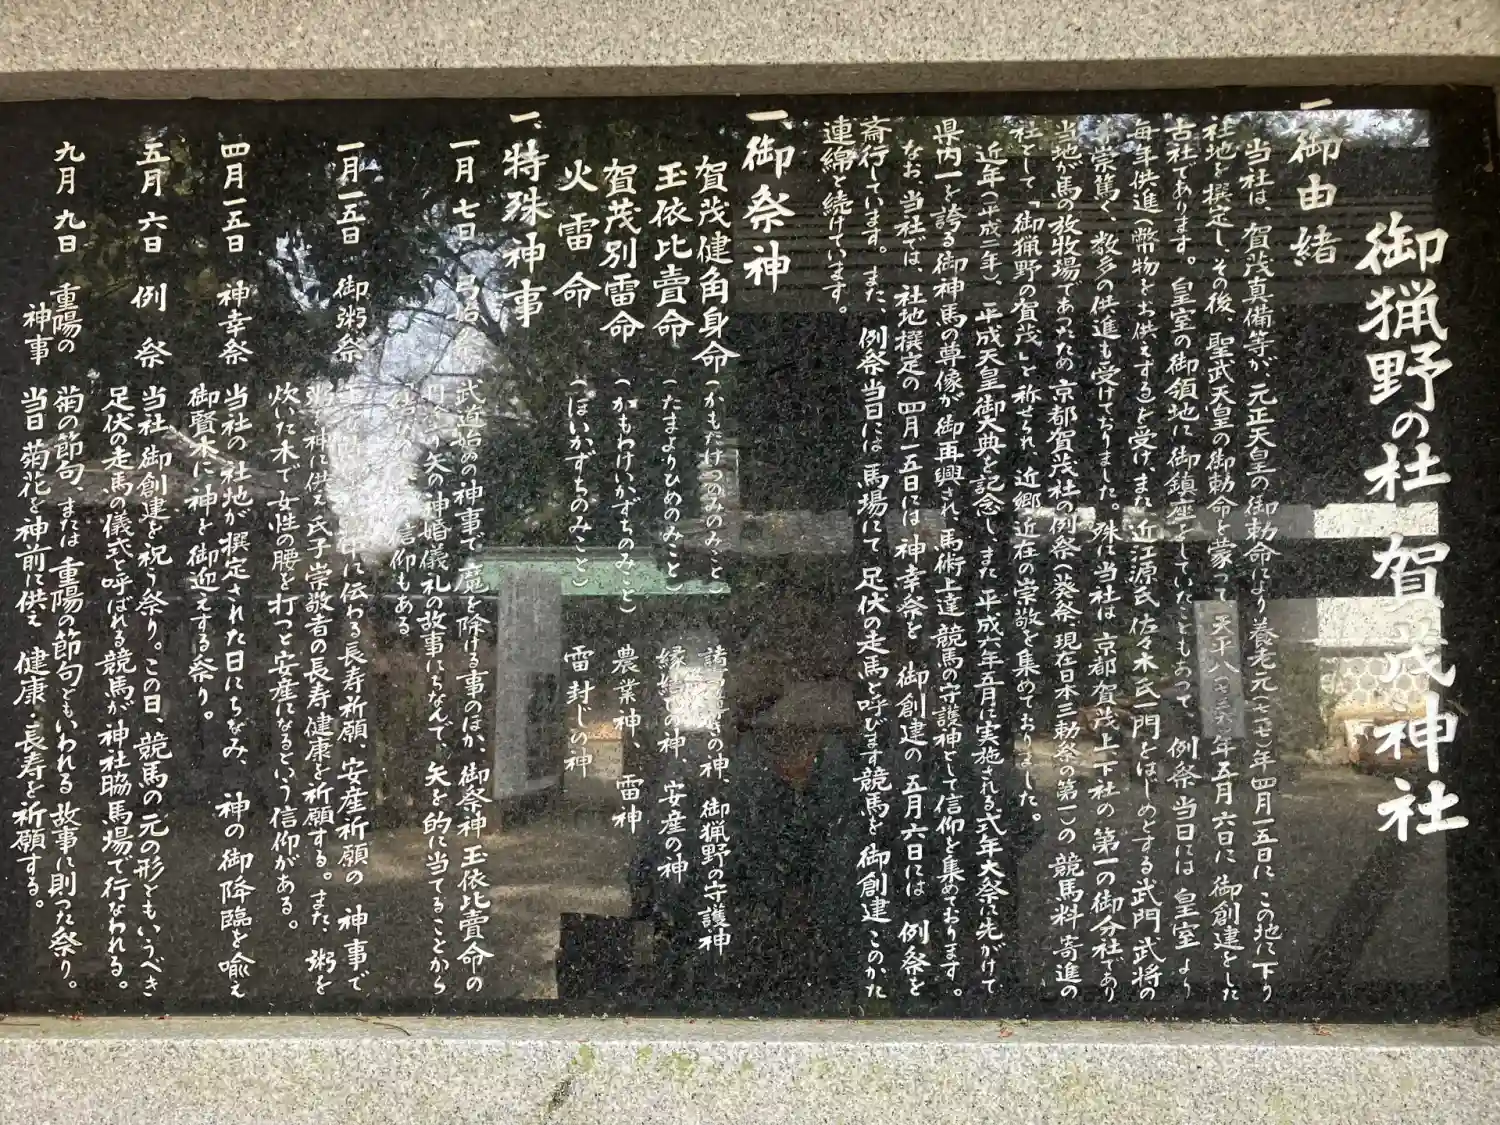 御猟野の杜 賀茂神社
一、御由緒
当社は、賀茂真備等が、元正天皇の御勅命により養老元(七一七)年四月一五日に この地に下り
社地を撰定し、その後、聖武天皇の御勅命を蒙って 天平八(七三六)年五月六日に 御創建をした
古社であります。皇室の御領地に御鎮座をしていたこともあって、例祭当日には 皇室より
毎年供進(幣物をお供えする)を受け、また 近江源氏 佐々木氏一門をはじめとする武門武将の
崇篤く、数多の供進も受けておりました。殊に当社は、京都賀茂上下社の 第一の御分社であり
当地が馬の放牧場であったため 京都賀茂社の例祭(葵祭、現在日本三勅祭の第一)の 競馬料寄進の
社として「御猟野の賀茂」と称せられ、近郷近在の崇敬を集めておりました。
近年(平成二年)、平成天皇御大典を記念し、また 平成六年五月に実施される、式年大祭に先がけて
県内一を誇る御神馬の尊像が御再興され、馬術上達、競馬の守護神として信仰を集めております。
なお 当社では、社地撰定の 四月一五日には 神幸祭を 御創建の 五月六日には 例祭を
斎行しています。また、例祭当日には 馬場にて 足伏の走馬と呼びます競馬を 御創建 このかた
連綿と続けています。
一、御祭神
賀茂健角身命(かもたけつのみのみこと 諸 の神、御猟野の守護神
玉依比賣命(たまよりひめのみこと) 縁結びの神、安産の神
賀茂別雷命(かもわけいかずちのみこと) 農業神、雷神
火雷命(ほいかずちのみこと) 雷封じの神
一、特殊神事
一月七日 弓始祭 武道始めの神事で、魔を除ける事のほか、御祭神 玉依比賣命の
矢の神婚儀礼の故事にちなんで、矢を的に当てることから
信仰もある
一月一五日 御粥祭 に伝わる長寿祈願、安産祈願の 神事で
粥を神に供え 氏子崇敬者の長寿健康を祈願する。また、粥を
炊いた木で 女性の腰を打つと安産になるという信仰がある。
四月一五日 神幸祭 当社の 社地が撰定された日にちなみ、神の御降臨を喩え
御賢木に神を御迎えする祭り。
五月六日 例祭 当社 御創建を祝う祭り。この日、競馬の元の形ともいうべき
足伏の走馬の儀式と呼ばれる競馬が 神社脇馬場で行なわれる。
九月九日 重陽の神事 菊の節句、または 重陽の節句ともいわれる 故事に則った祭り。
当日 菊花を神前に供え 健康、長寿を祈願する。